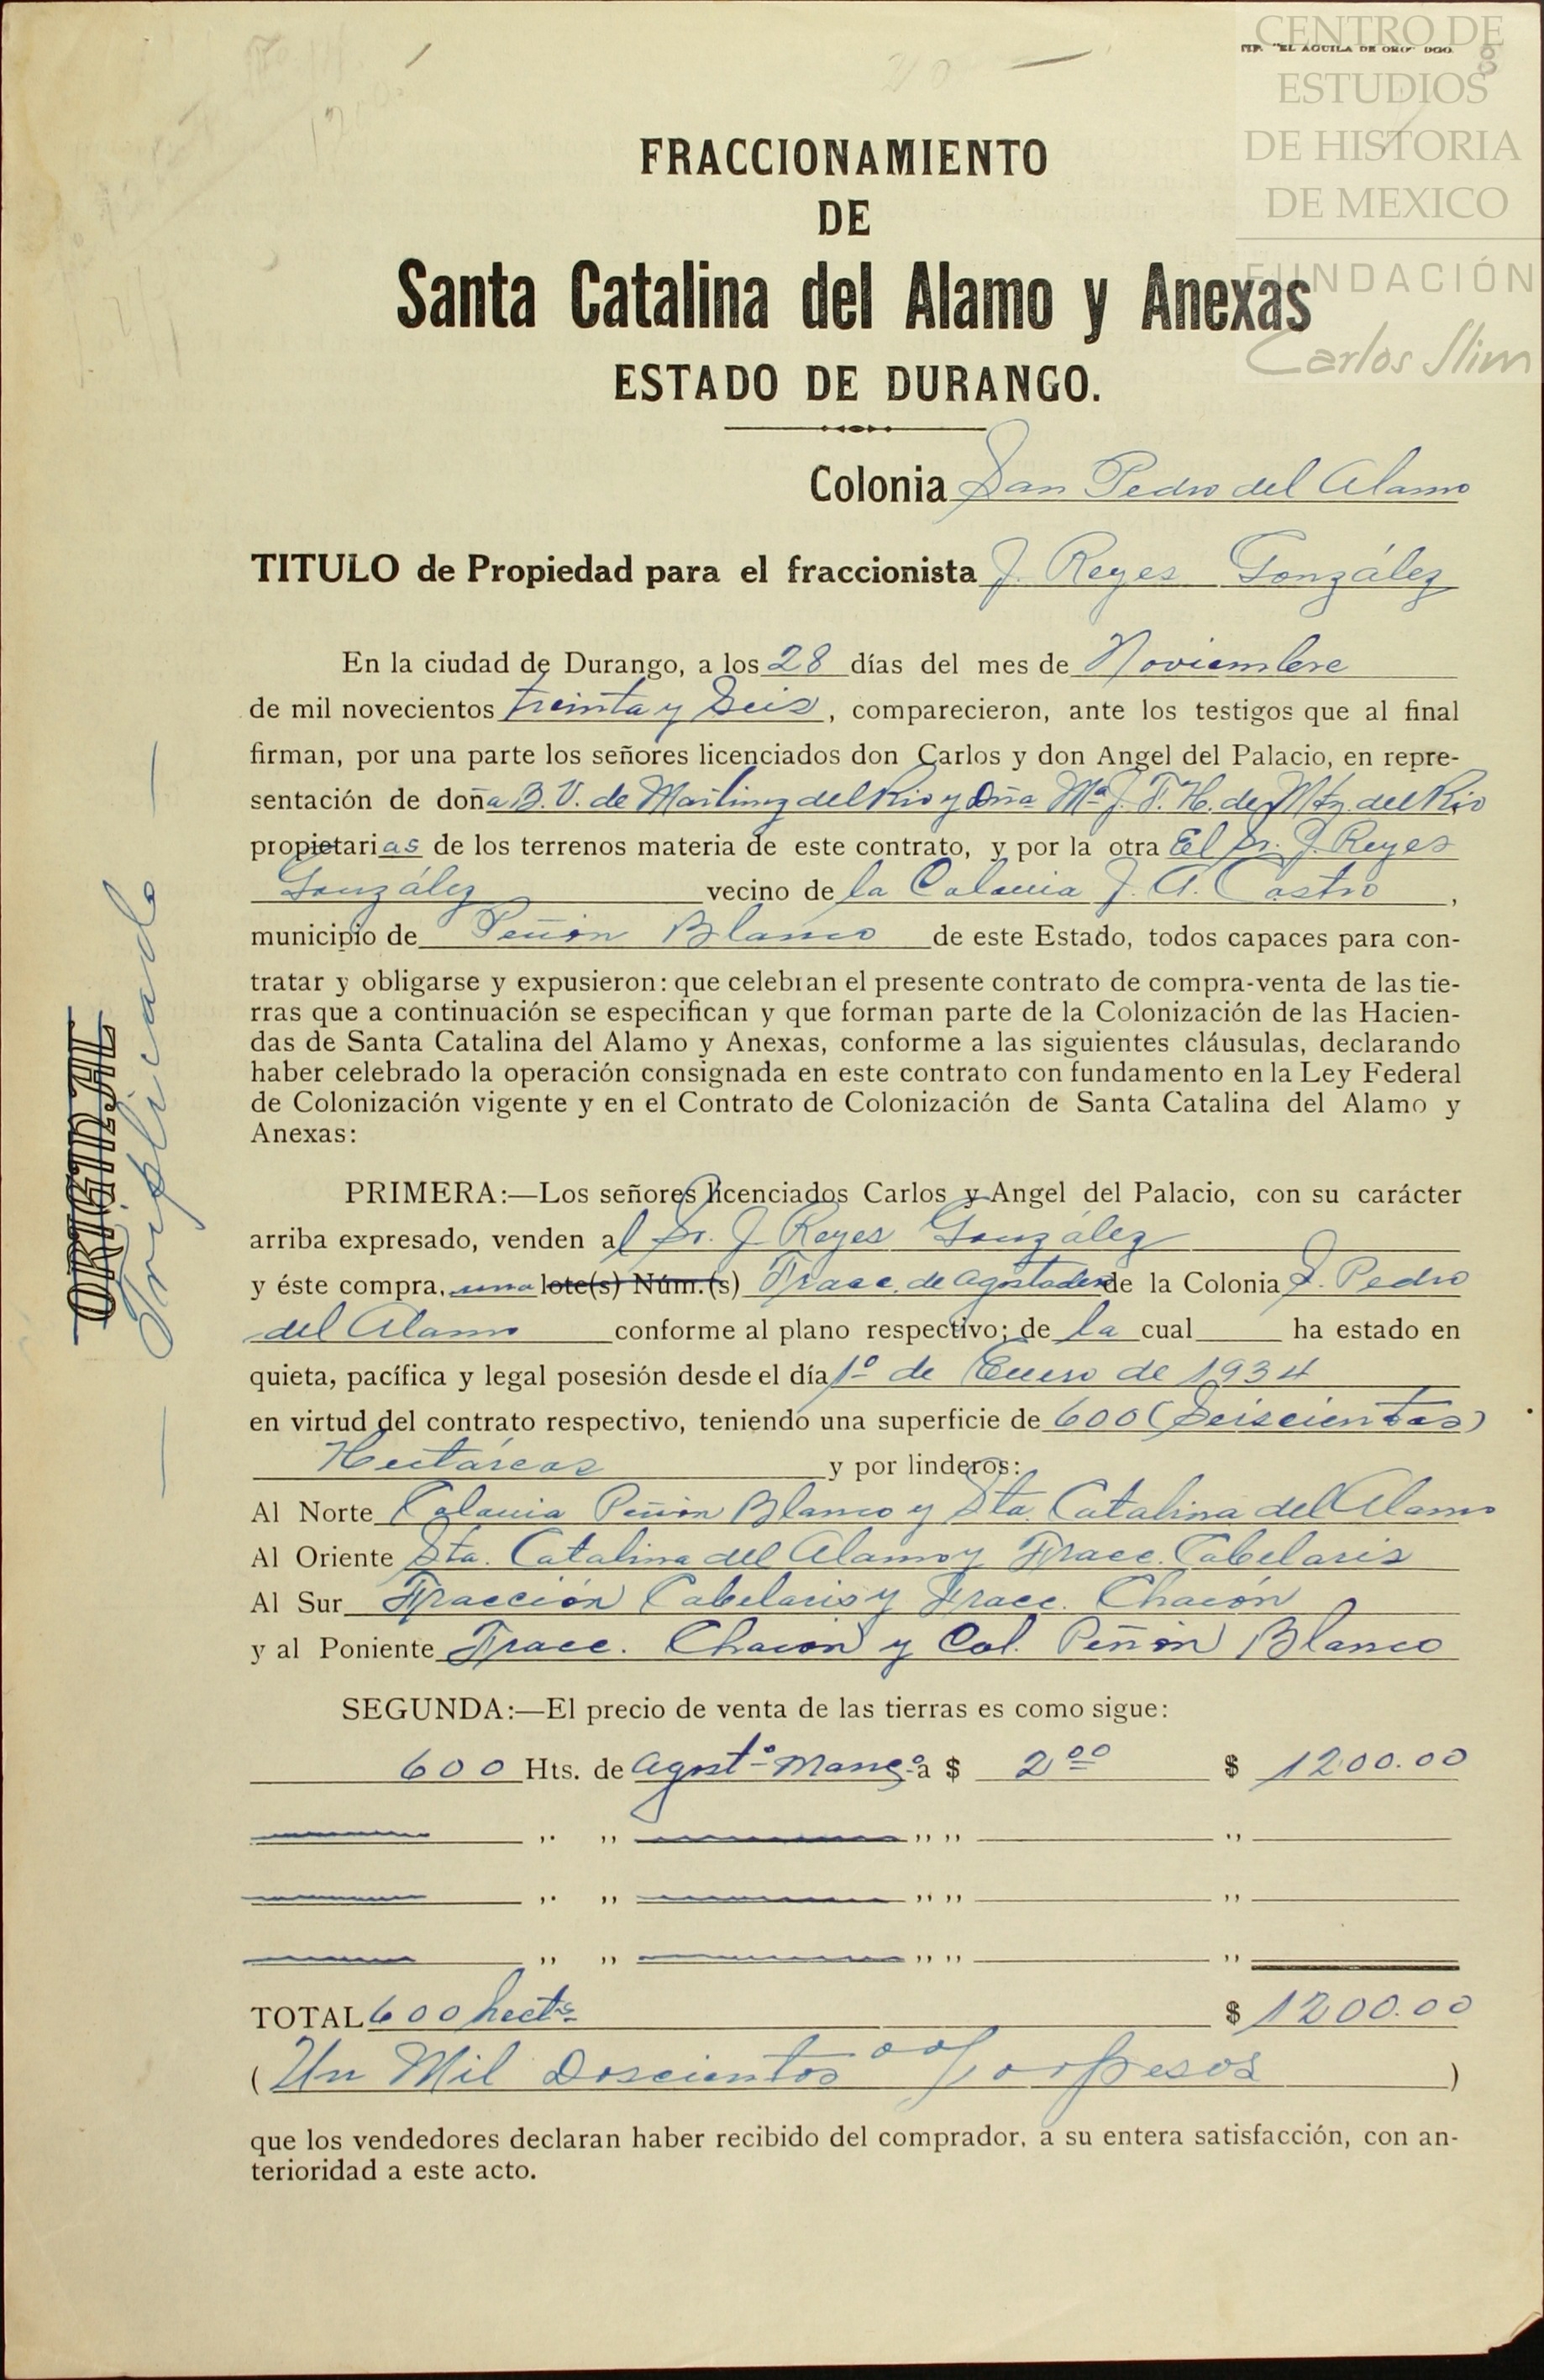 TIP. "EL AGUILA DE ORO" DGO.
CENTRO DE
ESTUDIOS
DE HISTORIA
DE MEXICO
FUNDACIÓN
Carlos Slim
FRACCIONAMIENTO
DE
Santa Catalina del Alamo y Anexas
ESTADO DE DURANGO.
Colonia San Pedro del Alamo
TITULO de Propiedad para el fraccionista J. Reyes González
En la ciudad de Durango, a los 28 días del mes de Noviembre
de mil novecientos treinta y Seis, comparecieron, ante los testigos que al final
firman, por una parte los señores licenciados don Carlos y don Angel del Palacio, en repre-
sentación de doña B. V. de Martinez del Rio y Dña Mª J. F. H. de Mtz. del Rio
propietarias de los terrenos materia de este contrato, y por la otra El Sr. J. Reyes
González vecino de la Colonia J. A. Castro,
municipio de Peñón Blanco de este Estado, todos capaces para con-
tratar y obligarse y expusieron: que celebran el presente contrato de compra-venta de las tie-
rras que a continuación se especifican y que forman parte de la Colonización de las Hacien-
das de Santa Catalina del Alamo y Anexas, conforme a las siguientes cláusulas, declarando
haber celebrado la operación consignada en este contrato con fundamento en la Ley Federal
de Colonización vigente y en el Contrato de Colonización de Santa Catalina del Alamo y
Anexas:
PRIMERA:—Los señores licenciados Carlos y Angel del Palacio, con su carácter
arriba expresado, venden al Sr. J. Reyes González
y éste compra, una lote(s) Núm.(s) Fracc. de Agostadero de la Colonia S. Pedro
del Alamo conforme al plano respectivo; de la cual ha estado en
quieta, pacífica y legal posesión desde el día 1º de Enero de 1934
en virtud del contrato respectivo, teniendo una superficie de 600 (Seiscientas)
Hectáreas y por linderos:
Al Norte Colonia Peñón Blanco y Sta. Catalina del Alamo
Al Oriente Sta. Catalina del Alamo y Fracc. Cabelaris
Al Sur Fracción Cabelaris y Fracc. Chacón
y al Poniente Fracc. Chacón y Col. Peñón Blanco
SEGUNDA:—El precio de venta de las tierras es como sigue:
600 Hts. de Agostº Mancº a $ 2 00 $ 1200.00
,, ,, ,, ,, ,,
,, ,, ,, ,, ,,
,, ,, ,, ,, ,,
TOTAL 600 hects $ 1200.00
( Un Mil Doscientos 00/00 pesos )
que los vendedores declaran haber recibido del comprador, a su entera satisfacción, con an-
terioridad a este acto.
ORIGINAL
— Triplicado —